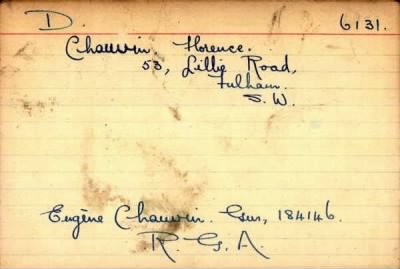 D. 6131.
Chauvin Florence.
53, Lillie Road,
Fulham.
S.W.
Eugène Chauvin. Gnr, 184146.
R.G.A